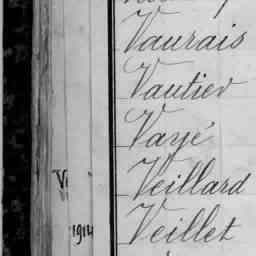 Vaurais
Vautier
Vayé
Veillard
Veillet
1914